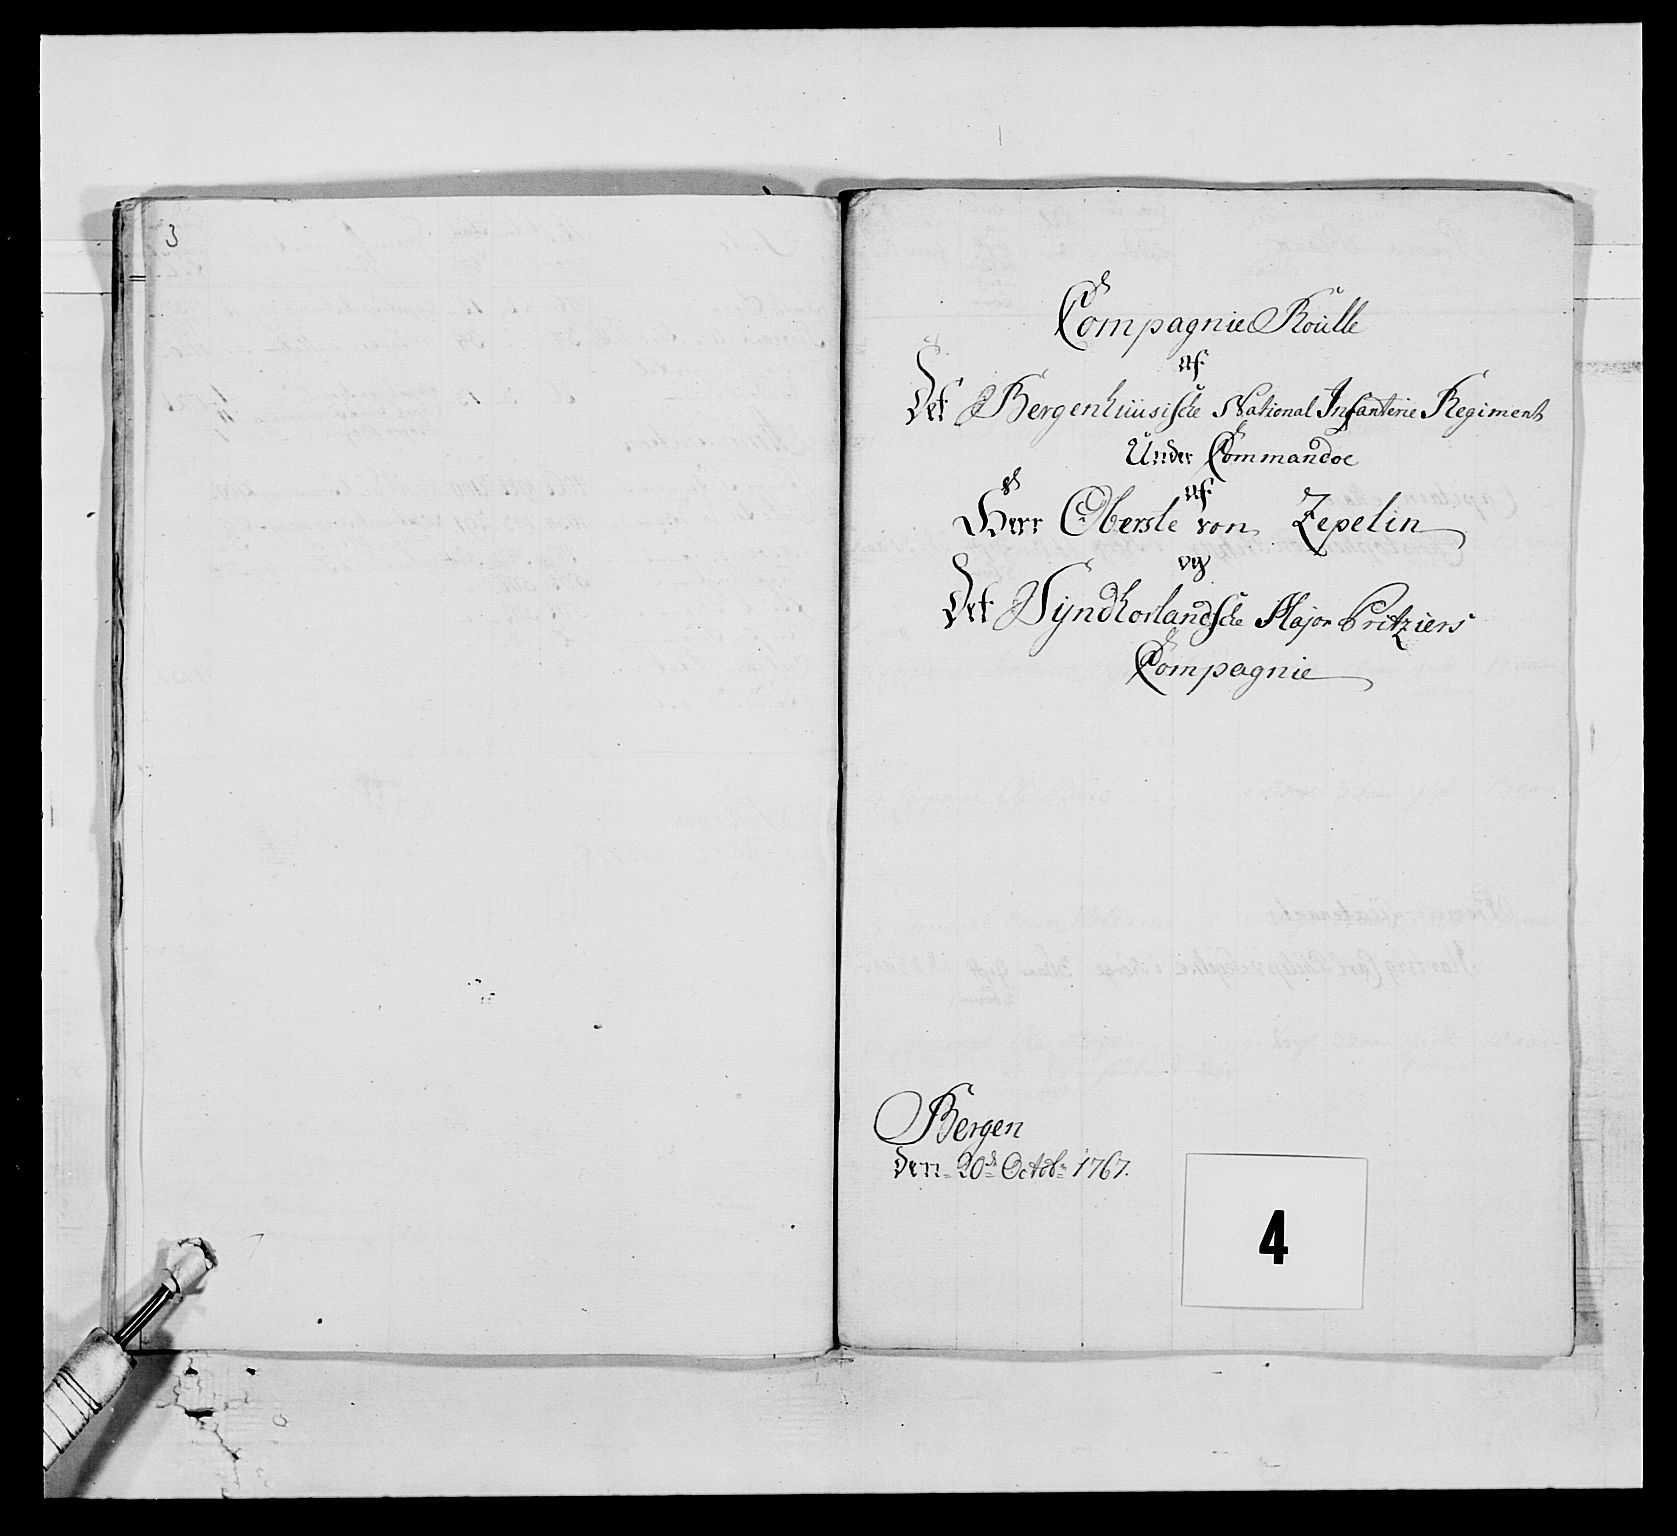 3
Compagnie Roulle
af
Det Bergenhuusische National Infanterie Regiment
Under Commandoe
af
Herr Oberste von Zepelin
og
Det Syndhorlandsche Major Pritziers
Compagnie
Bergen
den 20de Octobr 1767.
4